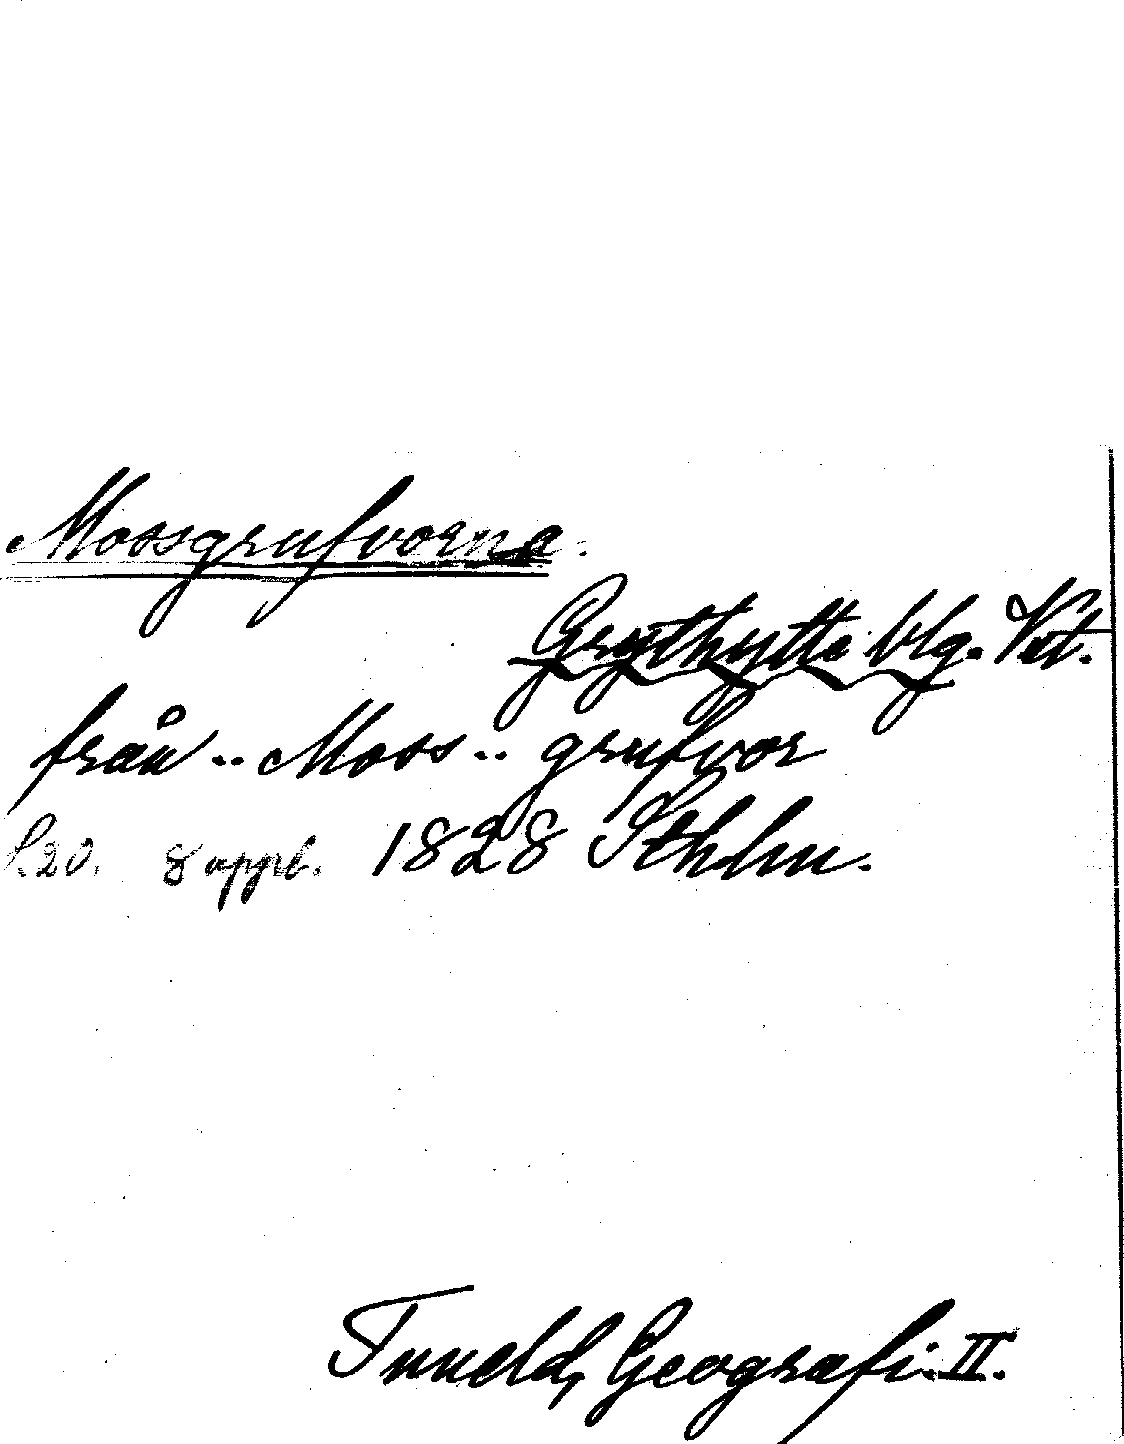 Mossgrufvorna.
Grythytte blg. Vstl.
från .. Moss .. grufvor
s. 20. 8 uppl. 1828 Sthlm.
Tuneld, Geografi. II.